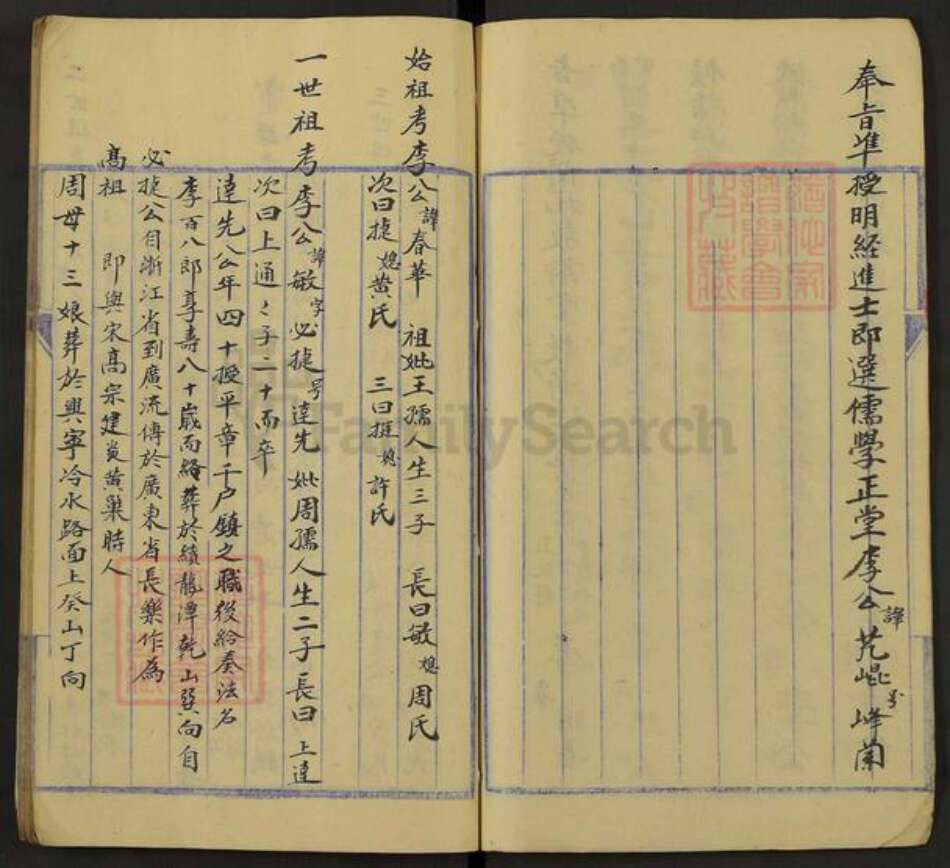 奉旨準授明經進士即選儒學正堂李公諱芃崐号峰蘭
始祖考李公諱春華 祖妣王孺人生三子 長曰敏媳周氏
次曰捷媳黄氏 三曰挺媳許氏
一世祖考李公諱敏字必捷号達先妣周孺人生二子長曰上達
次曰上通〻子二十而卒
達先公年四十授平章千户鎮之職後給奏法名
李百八郎享壽八十歲而終葬於績龍潭乾山巽向自
必捷公自浙江省到廣流傳於廣東省長樂作為
高祖 即與宋高宗建炎黄巢時人
周母十三娘葬於興寧冷水路面上癸山丁向
FamilySearch